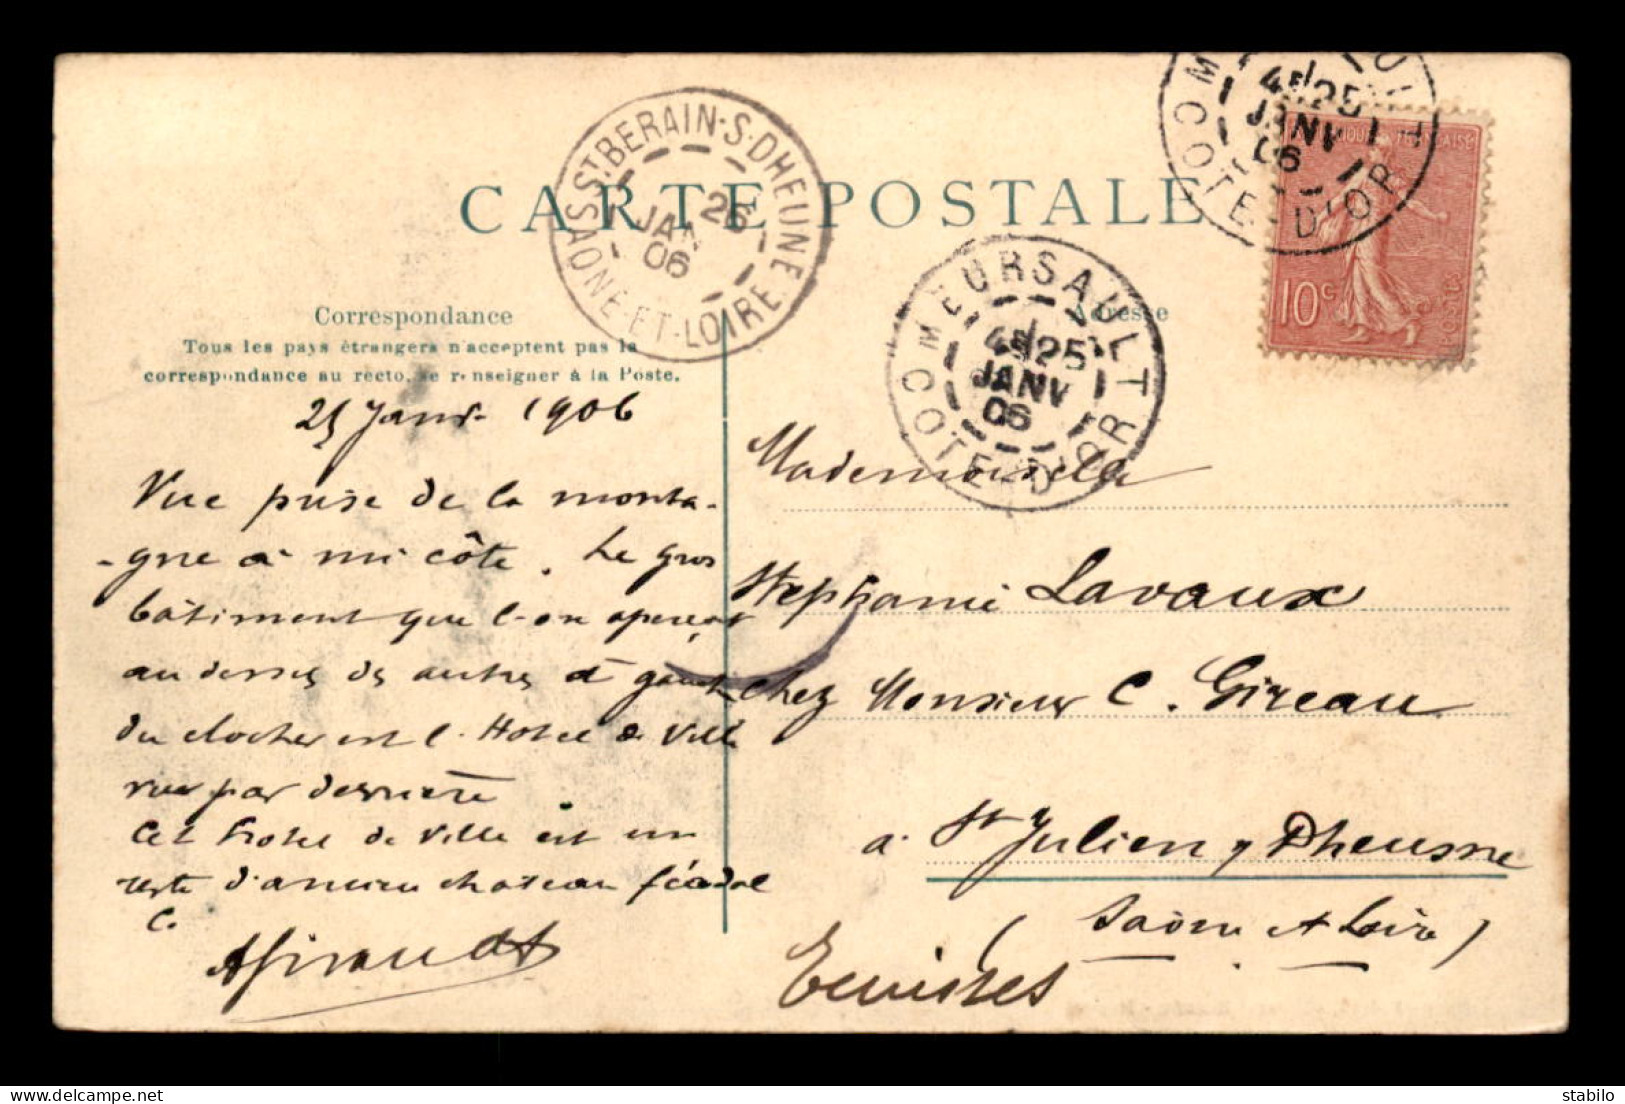 CARTE POSTALE
ST BERAIN-S-DHEUNE
26
JAN
06
SAONE-ET-LOIRE
MEURSAULT
4E/25
JANV
06
COTE-D'OR
4E/25
JANV
06
COTE-D'OR
10c
Correspondance
Adresse
Tous les pays étrangers n'acceptent pas la
correspondance au recto, se renseigner à la Poste.
25 Janv. 1906
Vue prise de la monta-
-gne à mi côte. Le gros
bâtiment que l'on aperçoit
au dessus des autres à gauche
du clocher est l'Hotel de Ville
vue par derrière
Cet Hotel de Ville est un
reste d'ancien chateau féodal
C.
AGiraudet
Mademoiselle
Stephanie Lavaux
chez Monsieur C. Gireau
à St Julien s/ Dheune
(Saône et Loire)
Ecuisses
delcampe.net
stabilo